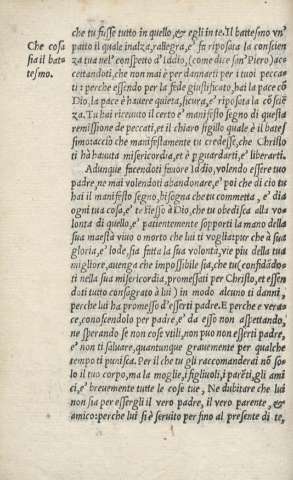 che tu fusse tutto in quello, & egli in te. Il battesmo vn'
Che cosa
sia il bat=
tesmo.
patto il quale inalza, rallegra, e' fa riposata la conscien
za tua nel' conspetto d'Iddio, (come dice san' Piero) ac=
cettandoti, che non mai è per dannarti per i tuoi pecca=
ti: perche essendo per la fede giustificato, hai la pace cō
Dio, la pace è hauere quieta, sicura, e' riposata la cōsciē
za. Tu hai riceuuto il certo e' manifesto segno di questa
remissione de peccati, et il chiaro sigillo quale è il battes
simo: accio che manifestamente tu credesse, che Christo
ti hà hauuta misericordia, et è p guardarti, e' liberarti.
Adunque facendoti fauore Iddio, volendo essere tuo
padre, ne mai volendoti abandonare, e' poi che di cio tu
hai il manifesto segno, bisogna che tu commetta, e' dia
ogni tua cosa, e' te stesso à Dio, che tu obedisca alla vo=
lonta di quello, e' patientemente sopporti la mano della
sua maestà viuo o morto che lui ti voglia: pur che à sua
gloria, e' lode, sia fatta la sua volontà, vie piu della tua
migliore, auenga che impossibile sia, che tu (confidādo=
ti nella sua misericordia, promessati per Christo, et essen
doti tutto consagrato à lui) in modo alcuno ti danni,
perche lui ha promesso d'esserti padre. E perche è verace,
conoscendolo per padre, e' da esso non aspettando,
ne sperando se non cose vtili, non puo non esserti padre,
e' non ti saluare, quantunque grauemente per qualche
tempo ti punisca. Per il che tu gli raccomanderai nō so=
lo il tuo corpo, ma la moglie, i figliuoli, i parēti, gli ami
ci, e' breuemente tutte le cose tue, Ne dubitare che lui
non sia per essergli il vero padre, il vero parente, &
amico: perche lui si è seruito per fino al presente di te,